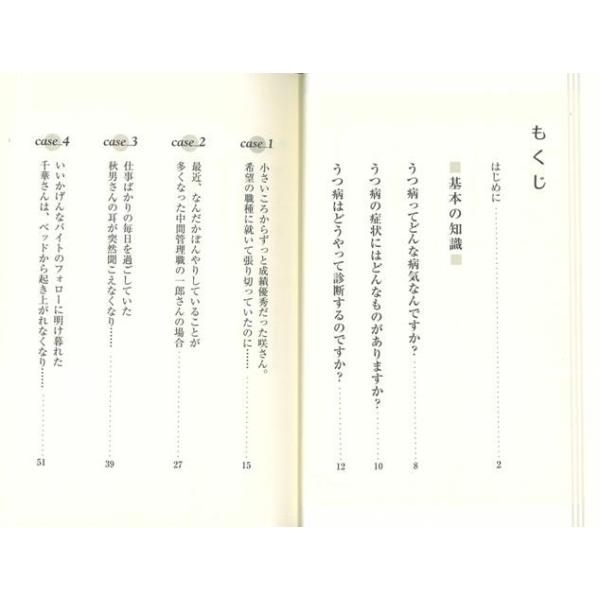 もくじ
はじめに…………2
■基本の知識■
うつ病ってどんな病気なんですか？…………8
うつ病の症状にはどんなものがありますか？…………10
うつ病はどうやって診断するのですか？…………12
case_1
小さいころからずっと成績優秀だった咲さん。
希望の職種に就いて張り切っていたのに………………15
case_2
最近、なんだかぼんやりしていることが
多くなった中間管理職の一郎さんの場合…………27
case_3
仕事ばかりの毎日を過ごしていた
秋男さんの耳が突然聞こえなくなり………………39
case_4
いいかげんなバイトのフォローに明け暮れた
千華さんは、ベッドから起き上がれなくなり………………51